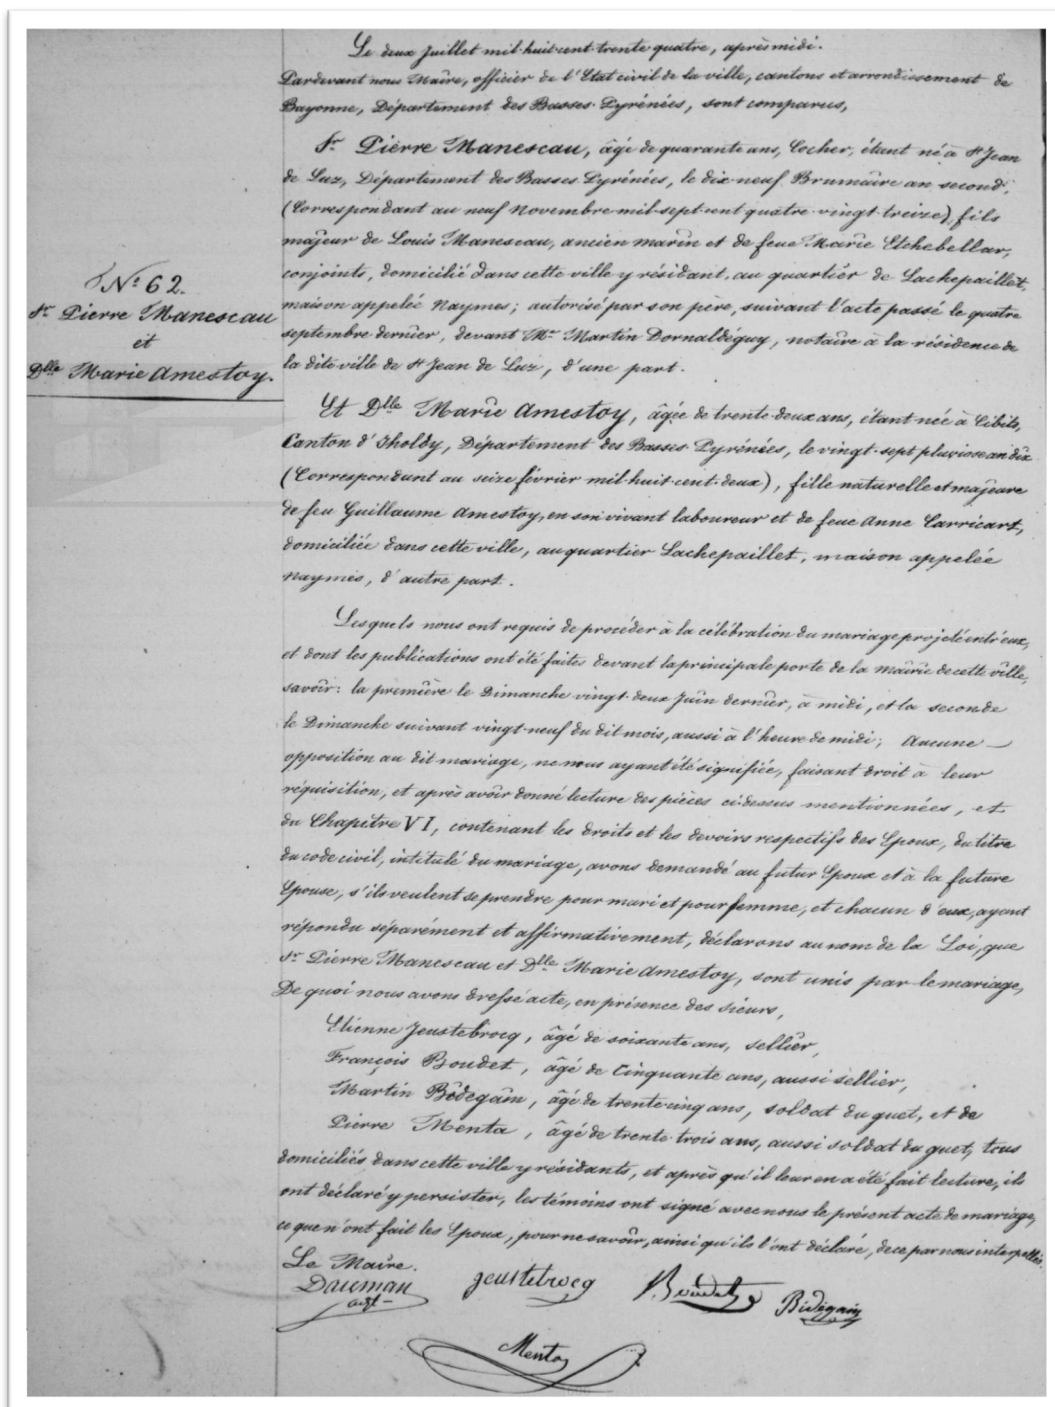 Le deux Juillet mil-huit-cent-trente quatre, après midi.
Pardevant nous Maire, officier de l'Etat civil de la ville, cantons et arrondissement de
Bayonne, Département des Basses-Pyrénées, sont comparus,
Sr Pierre Manescau, âgé de quarante ans, Cocher, étant né à St Jean
de Luz, Département des Basses-Pyrénées, le dix-neuf Brumaire an second,
(Correspondant au neuf Novembre mil-sept-cent quatre-vingt-treize), fils
majeur de Louis Manescau, ancien marin et de feue Marie Etchebellar,
conjoints, domicilié dans cette ville y résidant, au quartier de Lachepaillet,
maison appelée Naymes; autorisé par son père, suivant l'acte passé le quatre
septembre dernier, devant Me Martin Dornaldéguy, notaire à la résidence de
la dite ville de St Jean de Luz, d'une part.
No 62.
Sr Pierre Manescau
et
Dlle Marie Amestoy.
Et Dlle Marie Amestoy, âgée de trente-deux ans, étant née à Cibits,
Canton d'Iholdy, Département des Basses-Pyrénées, le vingt-sept pluviose an dix
(Correspondant au seize février mil-huit-cent-deux), fille naturelle et majeure
de feu Guillaume Amestoy, en son vivant laboureur et de feue Anne Carricart,
domiciliée dans cette ville, au quartier Lachepaillet, maison appelée
Naymes, d'autre part.
Lesquels nous ont requis de procéder à la célébration du mariage projeté entr'eux,
et dont les publications ont été faites devant la principale porte de la mairie de cette ville,
savoir: la première le Dimanche vingt-deux Juin dernier, à midi, et la seconde
le Dimanche suivant vingt-neuf du dit mois, aussi à l'heure de midi; Aucune
opposition au dit mariage, ne nous ayant été signifiée, faisant droit à leur
réquisition, et après avoir donné lecture des pièces ci-dessus mentionnées, et
du Chapitre VI, contenant les droits et les devoirs respectifs des Epoux, du titre
du code civil, intitulé du mariage, avons demandé au futur Epoux et à la future
Epouse, s'ils veulent se prendre pour mari et pour femme, et chacun d'eux, ayant
répondu séparément et affirmativement, déclarons au nom de la Loi, que
Sr Pierre Manescau et Dlle Marie Amestoy, sont unis par le mariage,
De quoi nous avons dressé acte, en présence des sieurs,
Etienne Jeustebrocq, âgé de soixante ans, sellier,
François Boudet, âgé de Cinquante ans, aussi sellier,
Martin Bidegain, âgé de trente-cinq ans, soldat du guet, et de
Pierre Menta, âgé de trente-trois ans, aussi soldat du guet, tous
domiciliés dans cette ville y résidants, et après qu'il leur en a été fait lecture, ils
ont déclaré y persister, les témoins ont signé avec nous le présent acte de mariage,
ce que n'ont fait les Epoux, pour ne savoir, ainsi qu'ils l'ont déclaré, de ce par nous interpellés.
Le Maire.
jeustebrocq
Boudet
Bidegain
Menta